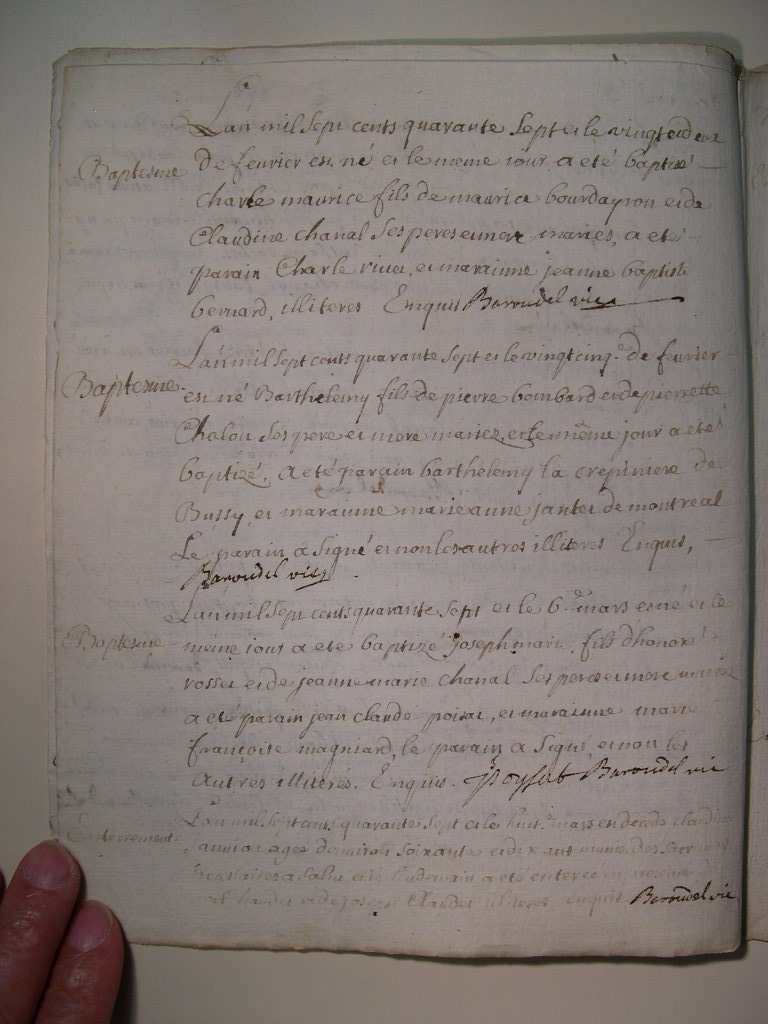 L'an mil sept cents quarante sept et le vingt et deux
Baptesme de fevrier est né et le meme jour a eté baptizé
charle maurice fils de maurice bourdayron et de
Claudine chanal ses peres et mere mariés, a eté
parain Charle et maraine jeanne baptiste
bernard, illiteres Enquis Baroudel vic
L'an mil sept cents quarante sept et le vingt cinq.e de fevrier
Baptesme est né Barthelemy fils de pierre bombard et de pierrette
Chalon ses pere et mere mariez, et le même jour a eté
baptizé, a eté parain barthelemy la crepiniere de
Bussy, et maraine marie anne jantet de montreal
Le parain a signé et non les autres illiteres Enquis,
Baroudel vic
L'an mil sept cents quarante sept et le 6. mars est né et le
Baptesme même jour a eté baptizé joseph marie fils d'honoré
rosset et de jeanne marie chanal ses peres et mere mariez
a eté parain jean claude poisat, et maraine marie
françoise magniard, le parain a signé et non les
autres illiterés. Enquis. jpoysat Baroudel vic
L'an mil sept cents quarante sept et le huit.e mars est decedé
Enterrement agée d'environ soixante et dix ans munie des
a eté enterée
et de joseph Claudet illiteres enquis Baroudel vic